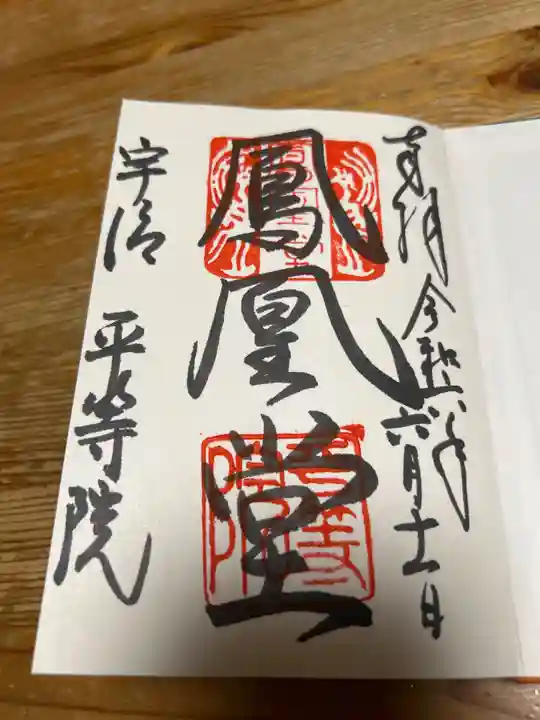 奉拝 令和六年
六月十一日
鳳凰堂
宇治 平等院